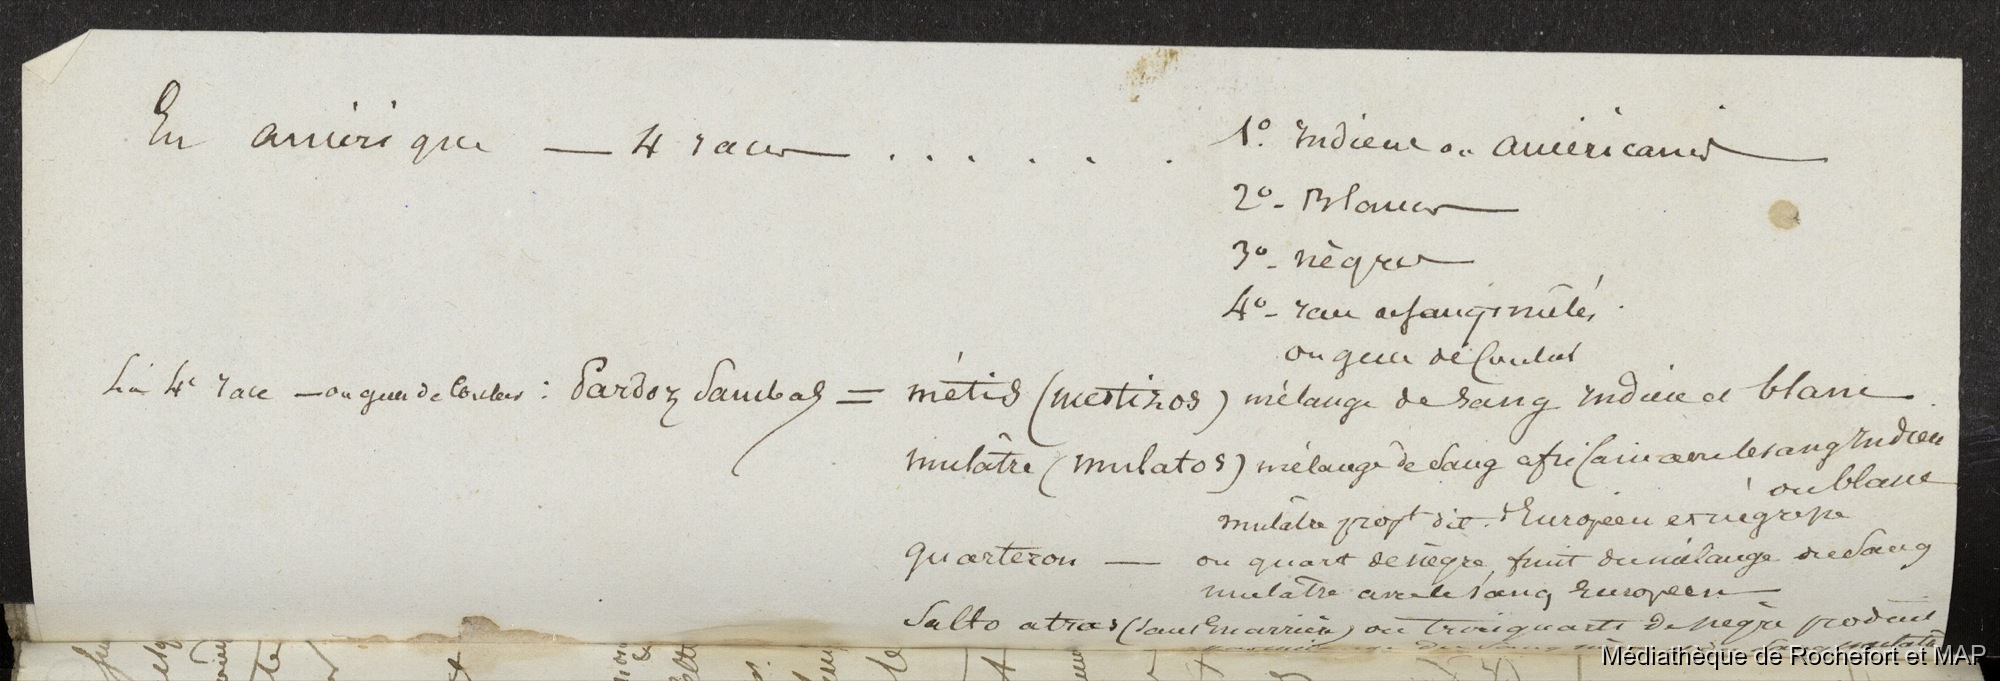 En amérique — 4 races — . . . . . . 1º. Indiens ou américains
2º - Blancs
3º - nègres
4º - race de sangs mêlés
ou gens de couleur
La 4e race — ou gens de couleur : Pardoz Sambas = métis (mestizos) mélange de sang indien et blanc
mulâtre (mulatos) mélange de sang africain avec le sang Indien
ou blanc
mulâtre propt dit. Européen et négresse
quarteron — ou quart de nègre, fruit du mélange de sang
mulâtre avec le sang Européen
Salto atras (saut en arrière) ou trois quarts de nègre produit
Médiathèque de Rochefort et MAP